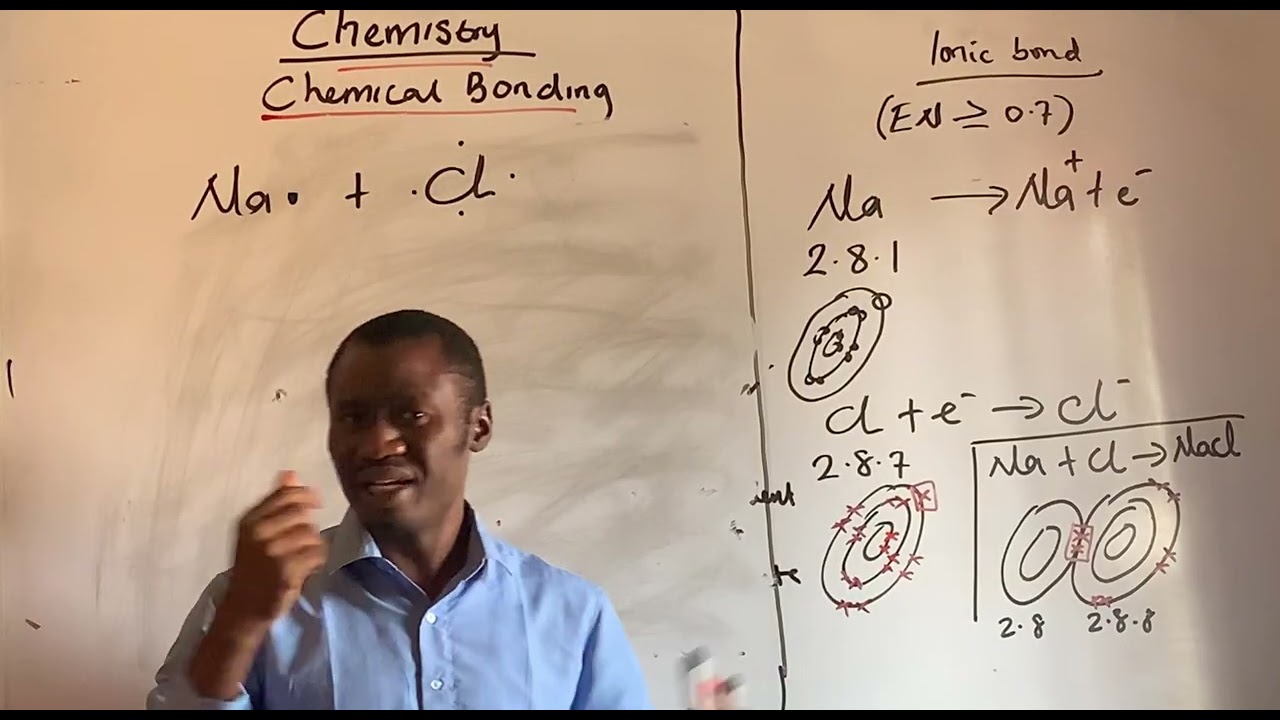 Chemistry
Chemical Bonding
Na· + ·Cl·
Ionic bond
(EN ≥ 0.7)
Na → Na⁺ + e⁻
2.8.1
Cl + e⁻ → Cl⁻
2.8.7
Na + Cl → NaCl
2.8 2.8.8